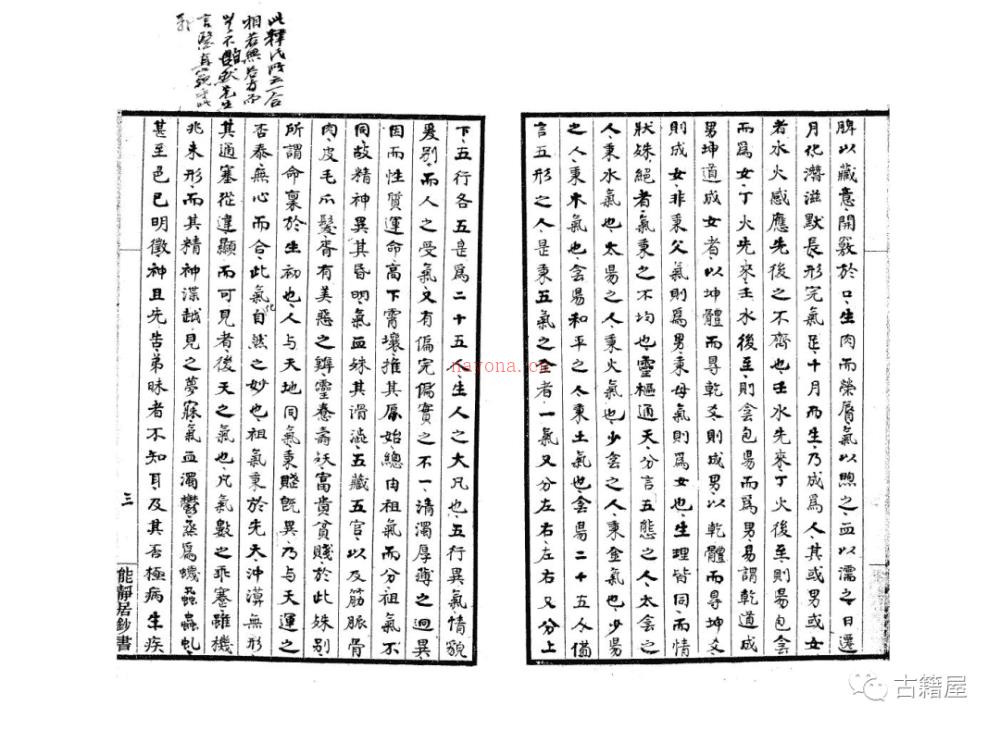 脾以藏意開竅於口生肉而榮脣氣以煦之血以濡之日遷
月化潛滋默長形完氣足十月而生乃成爲人其或男或女
者水火感應先後之不齊也壬水先來丁火後至則昜包侌
而爲女丁火先來壬水後至則侌包昜而爲男易謂乾道成
男坤道成女者以坤體而尋乾爻則成男以乾體而尋坤爻
則成女非秉父氣則爲男秉母氣則爲女也生理皆同而情
狀殊絕者氣秉之不均也靈樞通天分言五態之人太侌之
人秉水氣也太昜之人秉火氣也少侌之人秉金氣也少昜
之人秉木氣也侌昜和平之人秉土氣也侌昜二十五人僃
言五形之人是秉五氣之全者一氣又分左右左右又分上
下五行各五是爲二十五人生人之大凡也五行異氣情貌
爰別而人之受氣又有偏完偏實之不一清濁厚薄之迥異
因而性質運命高下霄壤推其厡始總由祖氣而分祖氣不
同故精神異其昏明氣血殊其滑澁五藏五官以及筋脈骨
肉皮毛爪髮胥有美惡之辨靈憃壽殀富貴貧賤於此殊別
所謂命禀於生初也人与天地同氣秉賤旣異乃与天運之
否泰無心而合此氣化自然之妙也祖氣秉於先天沖漠無形
其通塞從違顯而可見者後天之氣也凡氣數之乖蹇雖機
兆未形而其精神渫越見之夢寐氣血濁鬱蒸爲蟣蝨蟲虬
甚至色已明徵神且先告弟昧者不知耳及其否極病生疾
此釋氏
合
相若
而
先生
言醫
三
能靜居鈔書
narona.cn
古籍屋